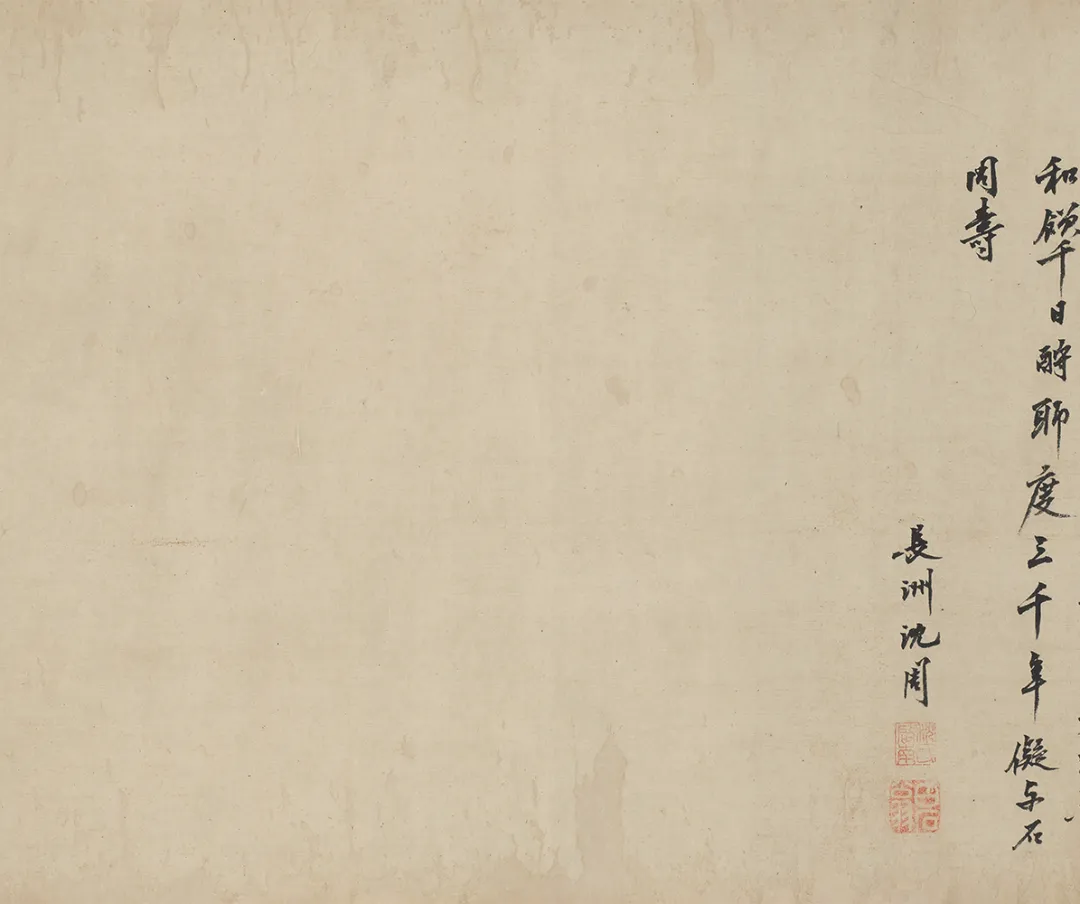 和 千日醉聊度三千年儗与石
同壽
長洲沈周